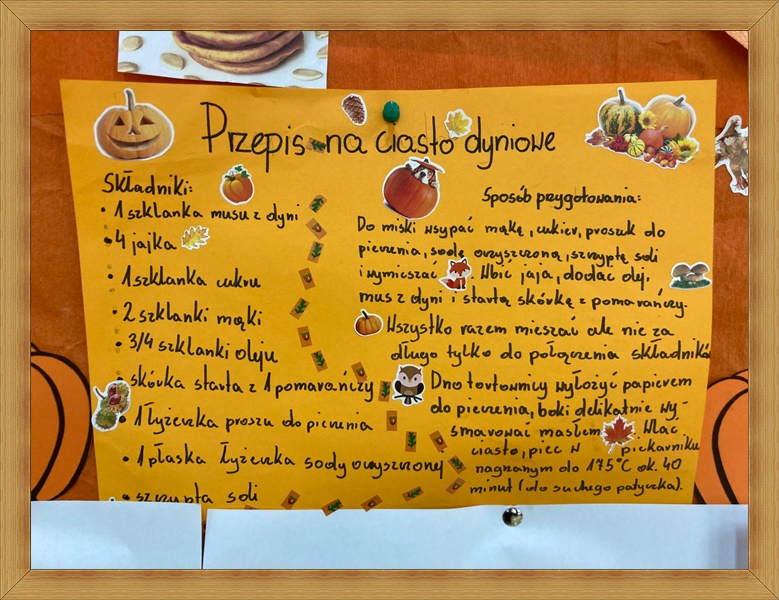 Przepis na ciasto dyniowe
Składniki:
• 1 szklanka musu z dyni
• 4 jajka
• 1 szklanka cukru
• 2 szklanki mąki
• 3/4 szklanki oleju
• skórka starta z 1 pomarańczy
• 1 łyżeczka proszu do pieczenia
• 1 płaska łyżeczka sody oczyszczonej
• szczypta soli
Sposób przygotowania:
Do miski wsypać mąkę, cukier, proszek do
pieczenia, sodę oczyszczoną, szczyptę soli
i wymieszać. Wbić jaja, dodać olej,
mus z dyni i startą skórkę z pomarańczy.
Wszystko razem mieszać ale nie za
długo tylko do połączenia składników
Dno tortownicy wyłożyć papierem
do pieczenia, boki delikatnie wy-
smarować masłem. Wlać
ciasto, piec w piekarniku
nagrzanym do 175°C ok. 40
minut (do suchego patyczka).